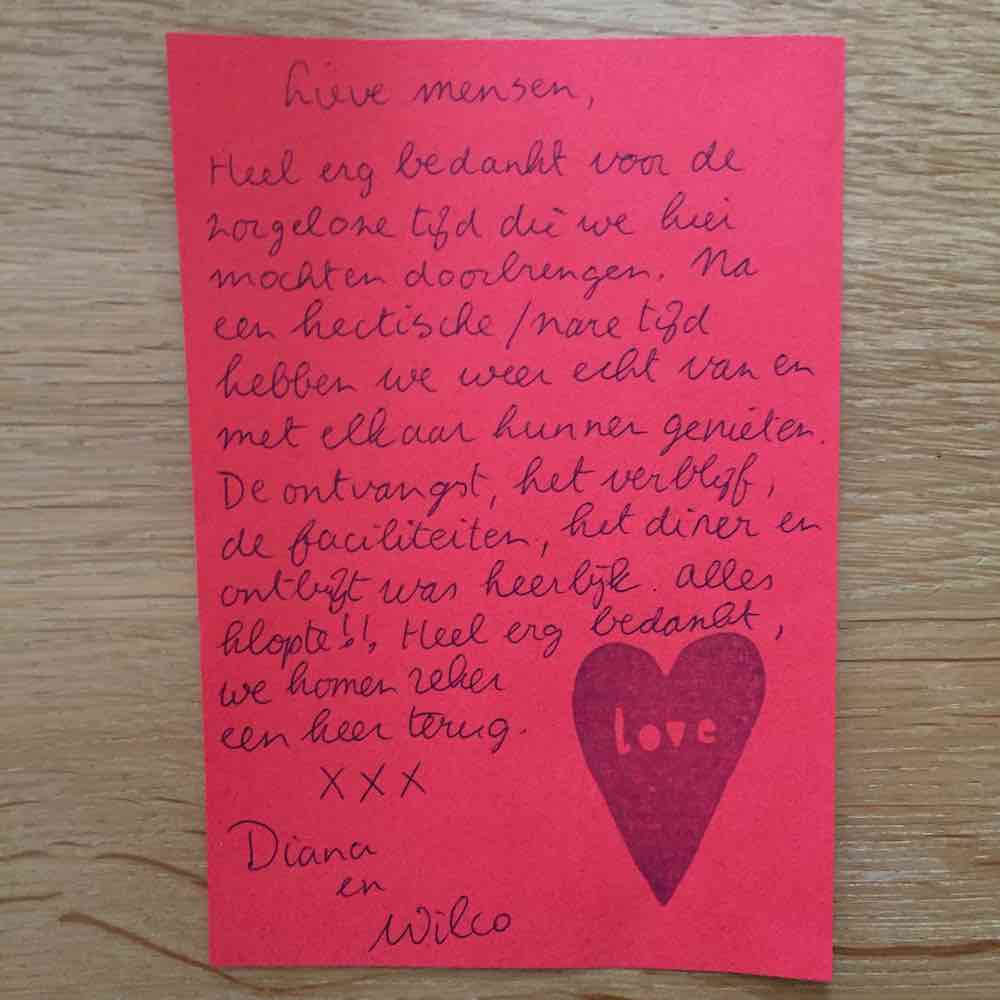 Lieve mensen,
Heel erg bedankt voor de
zorgeloze tijd die we hier
mochten doorbrengen. Na
een hectische/nare tijd
hebben we weer echt van en
met elkaar kunnen genieten.
De ontvangst, het verblijf,
de faciliteiten, het diner en
ontbijt was heerlijk. Alles
klopte!!, Heel erg bedankt,
we komen zeker
een keer terug.
XXX
love
Diana
en
Wilco